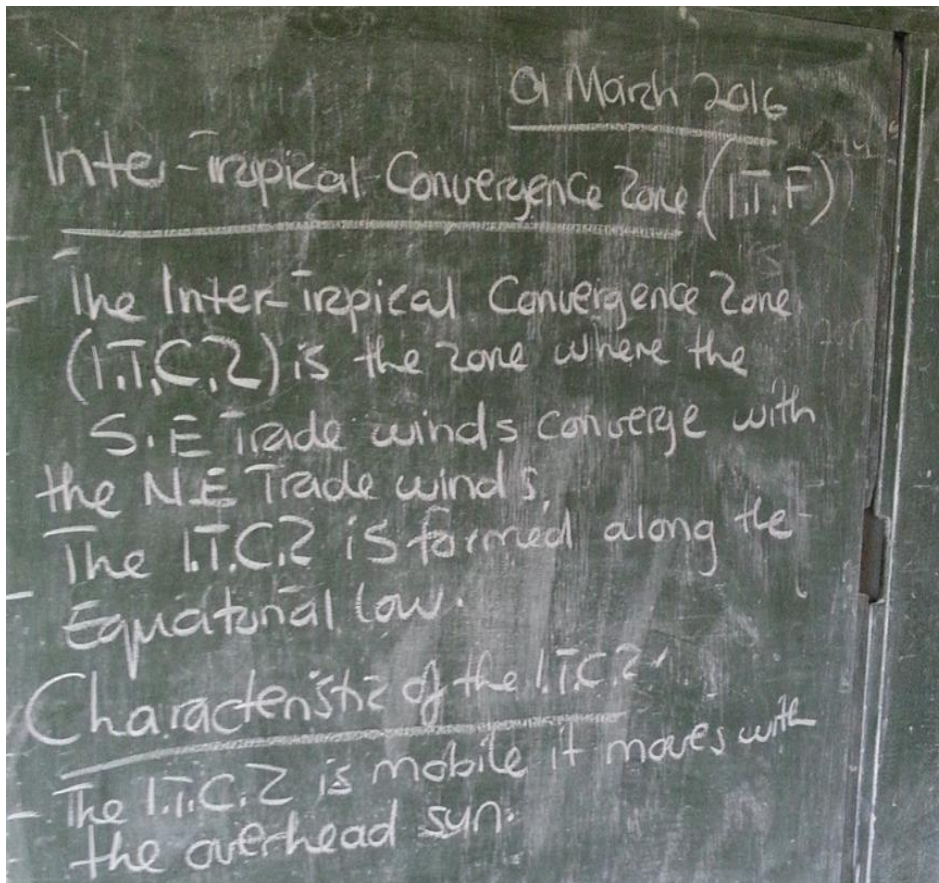 01 March 2016
Inter-Tropical Convergence Zone (I.T.F)
- The Inter-Tropical Convergence Zone
(I.T.C.Z) is the zone where the
S.E Trade winds converge with
the N.E Trade winds.
The I.T.C.Z is formed along the
- Equatorial low.
Characteristic of the I.T.C.Z
- The I.T.C.Z is mobile it moves with
the overhead sun.